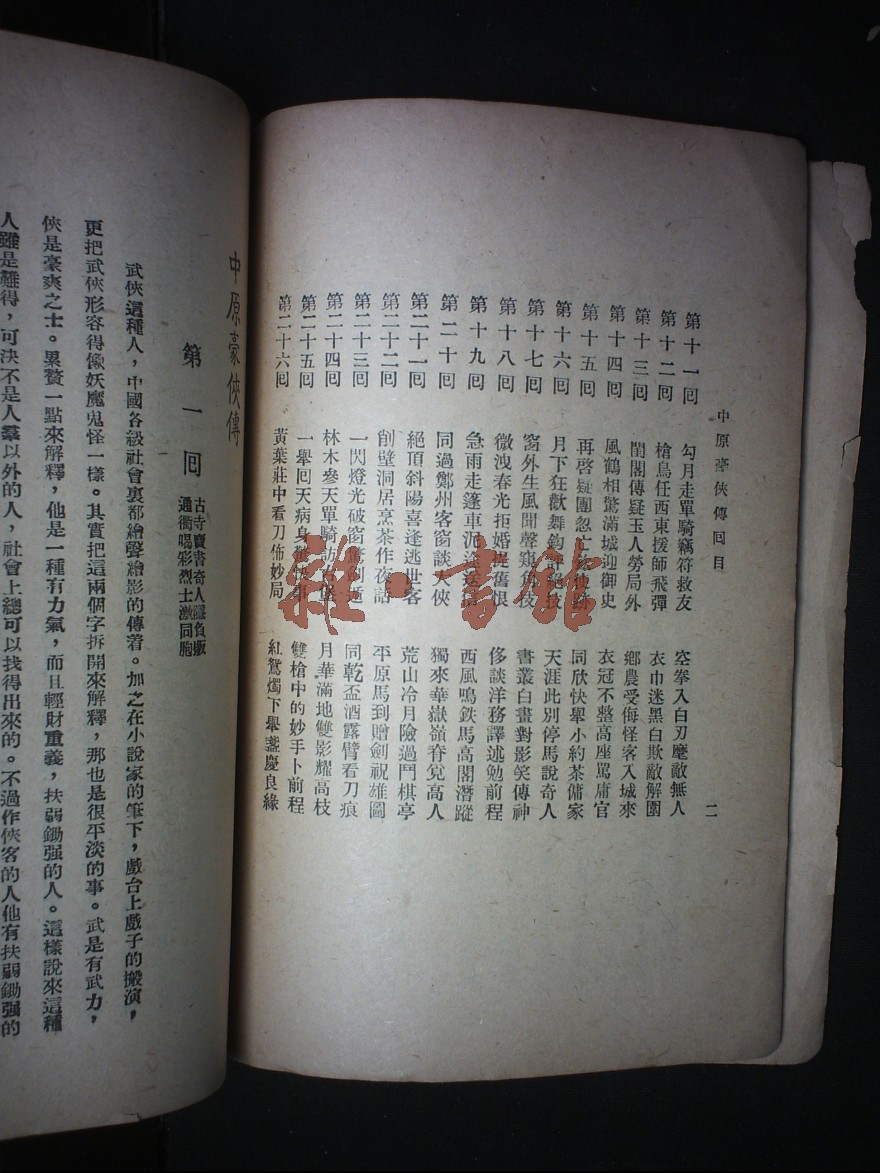 中原豪俠傳回目
二
第十一回 勾月走單騎竊符救友 空拳入白刃麾敵無人
第十二回 槍鳥任西東援師飛彈 衣巾迷黑白欺敵解圍
第十三回 閨閣傳疑玉人勞局外 鄉農受侮怪客入城來
第十四回 風鶴相驚滿城迎御史 衣冠不整高座罵庸官
第十五回 再啓疑團忽 同欣快舉小約茶傭家
第十六回 月下狂歡舞鈎 絕技 天涯此別停馬說奇人
第十七回 窗外生風聞聲窺 技 書叢白畫對影笑傳神
第十八回 微洩春光拒婚提舊恨 侈談洋務譯述勉前程
第十九回 急雨走篷車泥途送 西風鳴鉄馬高閣潛蹤
第二十回 同過鄭州客窗談大俠 獨來華嶽嶺脊覓高人
第二十一回 絕頂斜陽喜逢逃世客 荒山冷月險過鬥棋亭
第二十二回 削壁洞居烹茶作夜話 平原馬到贈劍祝雄圖
第二十三回 一閃燈光破窗驚 同乾盃酒露臂看刀痕
第二十四回 林木參天單騎訪古 月華滿地雙影耀高枝
第二十五回 一舉回天病身 雙槍中的妙手卜前程
第二十六回 黃葉莊中看刀佈妙局 紅鴛燭下舉盞慶良緣
雜·書館
中原豪俠傳
第一回 古寺賣書奇人隱負販
通衢喝彩烈士激同胞
武俠這種人，中國各級社會裏都繪聲繪影的傳着。加之在小說家的筆下，戲台上戲子的搬演，
更把武俠形容得像妖魔鬼怪一樣。其實把這兩個字拆開來解釋，那也是很平淡的事。武是有武力，
俠是豪爽之士。累贅一點來解釋，他是一種有力氣，而且輕財重義，扶弱鋤强的人。這樣說來這種
人雖是難得，可決不是人羣以外的人，社會上總可以找得出來的。不過作俠客的人他有扶弱鋤强的